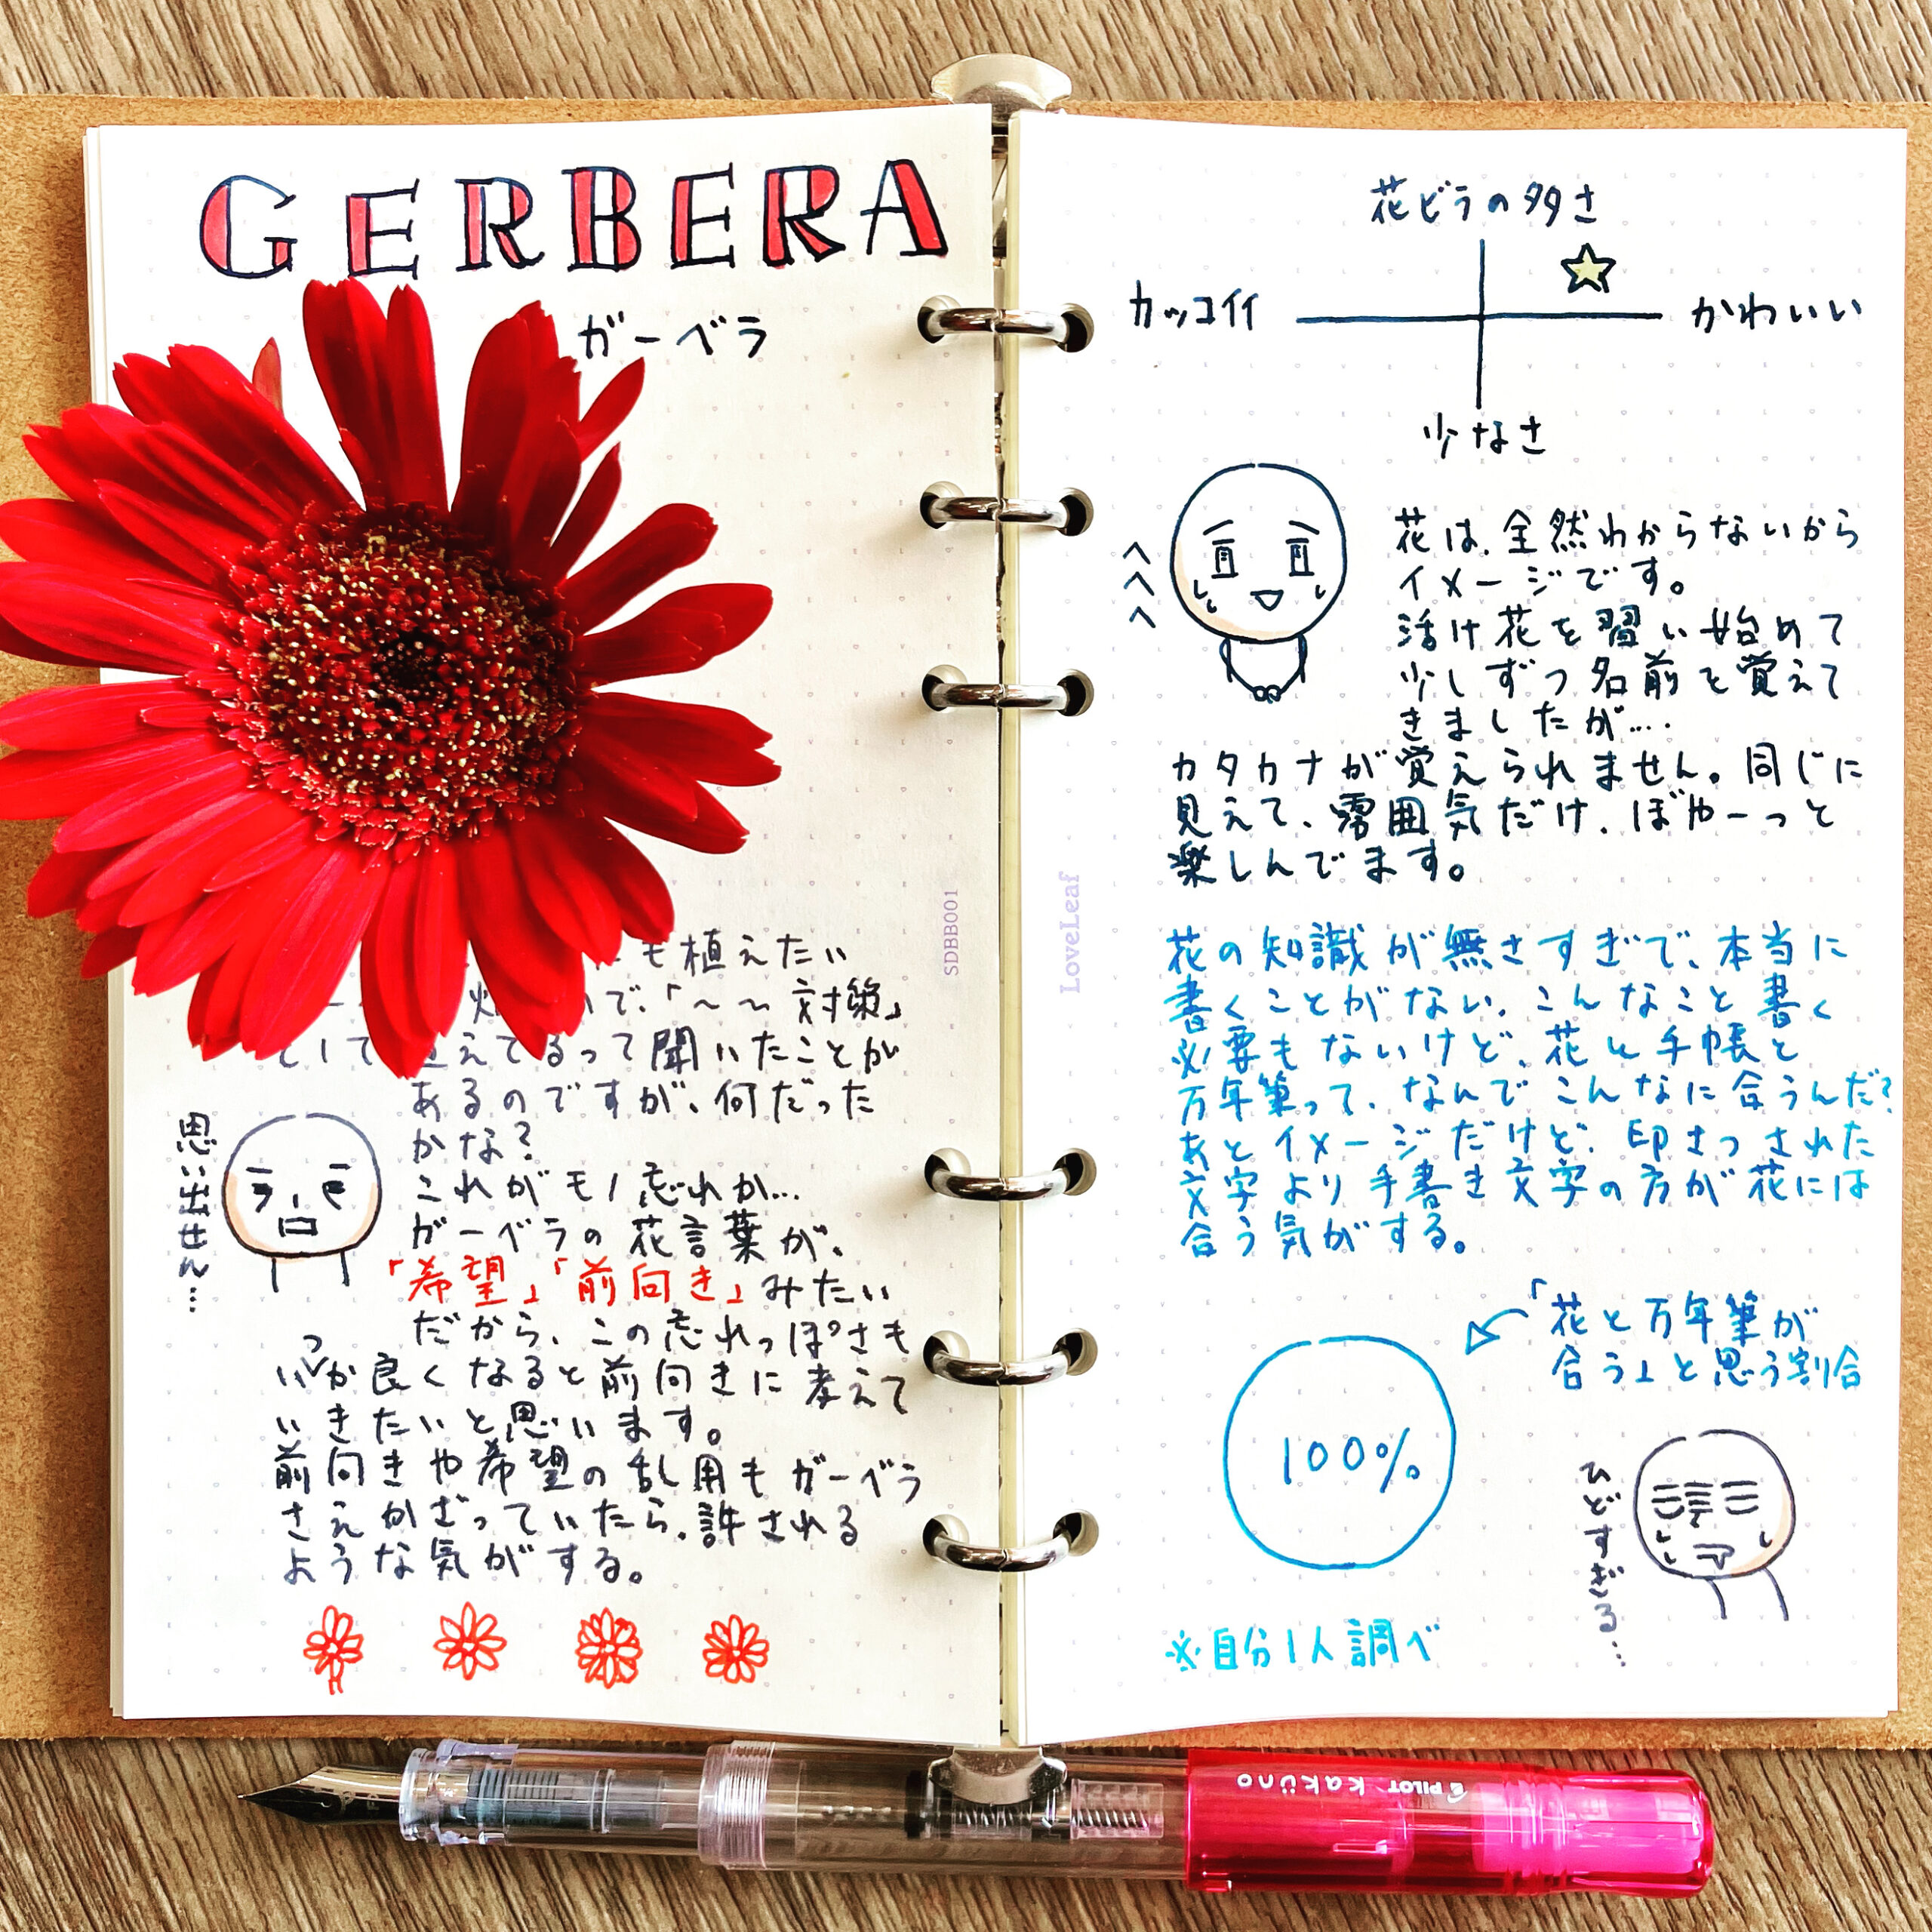 GERBERA
ガーベラ
も植えたい
で、「～～対策」
えてるって聞いたことが
あるのですが、何だった
かな?
これがモノ忘れか…
ガーベラの花言葉が、
「希望」「前向き」みたい
だから、この忘れっぽさも
いつか良くなると前向きに考えて
いきたいと思います。
前向きや希望の乱用もガーベラ
さえかざっていたら、許される
ような気がする。
思い出せん…
SDBB001
LoveLeaf
花びらの多さ
カッコイイ
かわいい
少なさ
花は、全然わからないから
イメージです。
活け花を習い始めて
少しずつ名前を覚えて
きましたが…
カタカナが覚えられません。同じに
見えて、雰囲気だけ、ぼやーっと
楽しんでます。
花の知識が無さすぎで、本当に
書くことがない、こんなこと書く
必要もないけど、花と手帳と
万年筆って、なんでこんなに合うんだ?
あとイメージだけど、印さつされた
文字より手書き文字の方が花には
合う気がする。
「花と万年筆が
合う」と思う割合
100%
ひどすぎる…
※自分1人調べ
PILOT kaküno